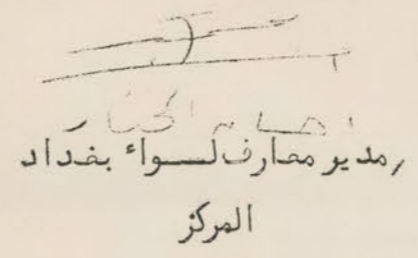 /مدير معارف لواء بغداد
المركز